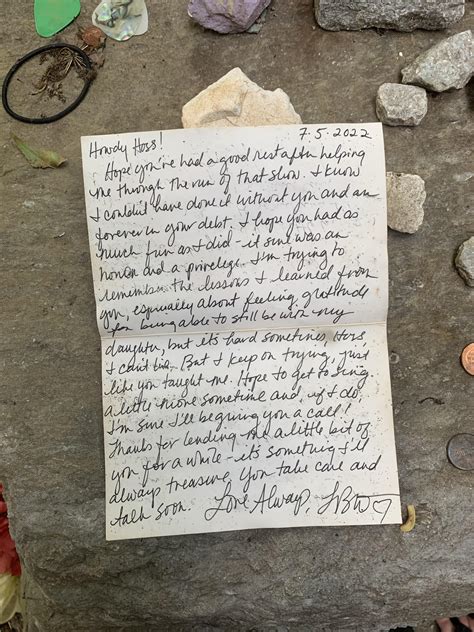 7.5.2022
Howdy Hoss!
Hope you've had a good rest after helping
me through the run of that show. I know
I couldn't have done it without you and am
forever in your debt. I hope you had as
much fun as I did - it sure was an
honor and a privelege. I'm trying to
remember the lessons I learned from
you, especially about feeling gratitude
for being able to still be with my
daughter, but it's hard sometimes, Hoss,
I can't lie. But I keep on trying, just
like you taught me. Hope to get to sing
a little more sometime and, if I do,
I'm sure I'll be giving you a call!
Thanks for lending me a little bit of
you for a while - it's something I'll
always treasure. You take care and
talk soon. Love Always,